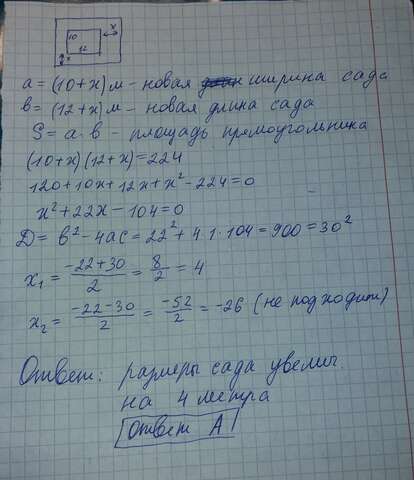 x
10
12
x
a = (10+x) м - новая ширина сада
в = (12+x) м - новая длина сада
S = a·в - площадь прямоугольника
(10+x)(12+x)=224
120+10x+12x+x²-224=0
x²+22x-104=0
D = в²-4ac = 22²+4·1·104=900=30²
x₁ = (-22+30)/2 = 8/2 = 4
x₂ = (-22-30)/2 = -52/2 = -26 (не подходит)
Ответ: размеры сада увелич.
на 4 метра
ответ А